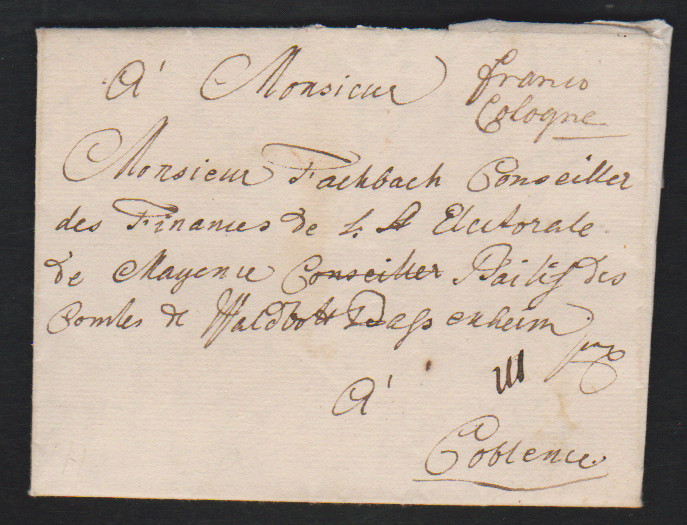 A' Monsieur
franco
Cologne
Monsieur Fachbach Conseiller
des Finances de S. A Electorale
de Mayence Conseiller Bailif des
Comtes de Waldbott Bassenheim
A'
Coblence